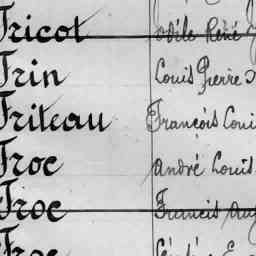 Tricot Odile René
Trin Louis Pierre
Triteau François Loui
Troc André Louis
Troc Francis Aug
Troc